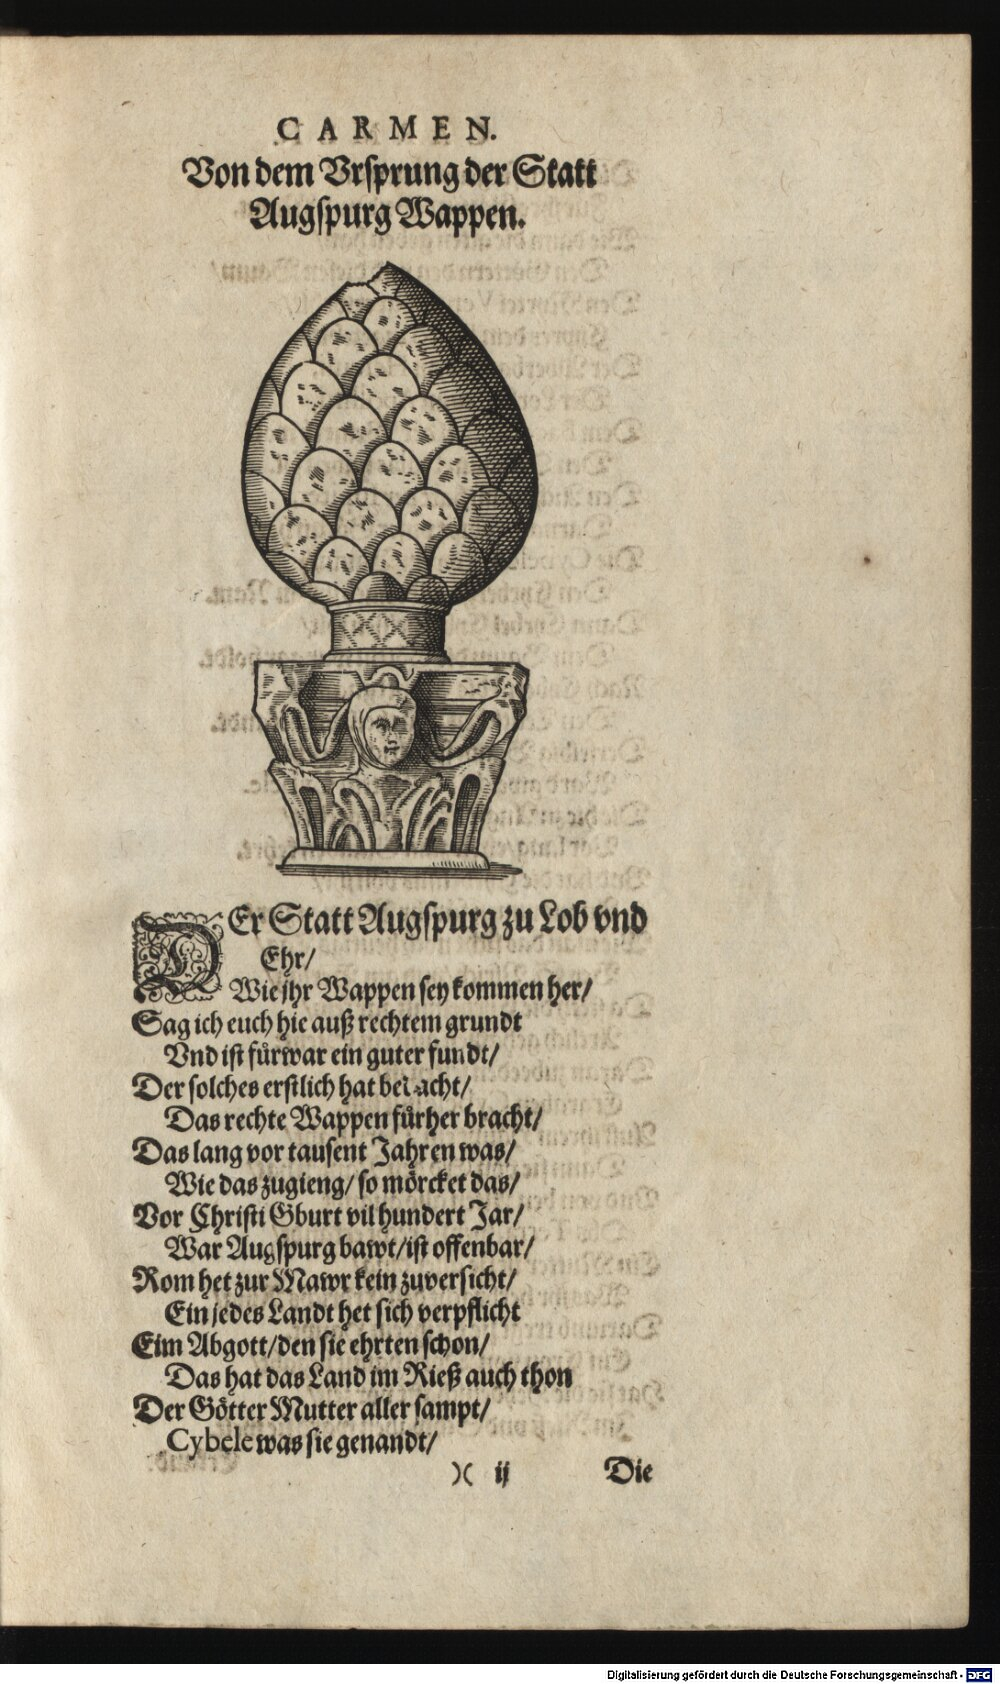 CARMEN.
Von dem Vrſprung der Statt
Augſpurg Wappen.
DEr Statt Augſpurg zu Lob vnd
Ehr/
Wie jhr Wappen ſey kommen her/
Sag ich euch hie auß rechtem grundt
Vnd iſt fuͤrwar ein guter fundt/
Der ſolches erſtlich hat
Das rechte Wappen fuͤrher bracht/
Das lang vor tauſent Jahren was/
Wie das zugieng/ ſo moͤrcket das/
Vor Chriſti Gburt vil hundert Jar/
War Augſpurg bawt/ iſt offenbar/
Rom het zur Mawr kein zuverſicht/
Ein jedes Landt het ſich verpflicht
Eim Abgott/ den ſie ehrten ſchon/
Das hat das Land im Rieß auch thon
Der Goͤtter Mutter aller ſampt/
Cybele was ſie genandt/
)( ij Die
Digitalisierung gefördert durch die Deutsche Forschungsgemeinschaft - DFG